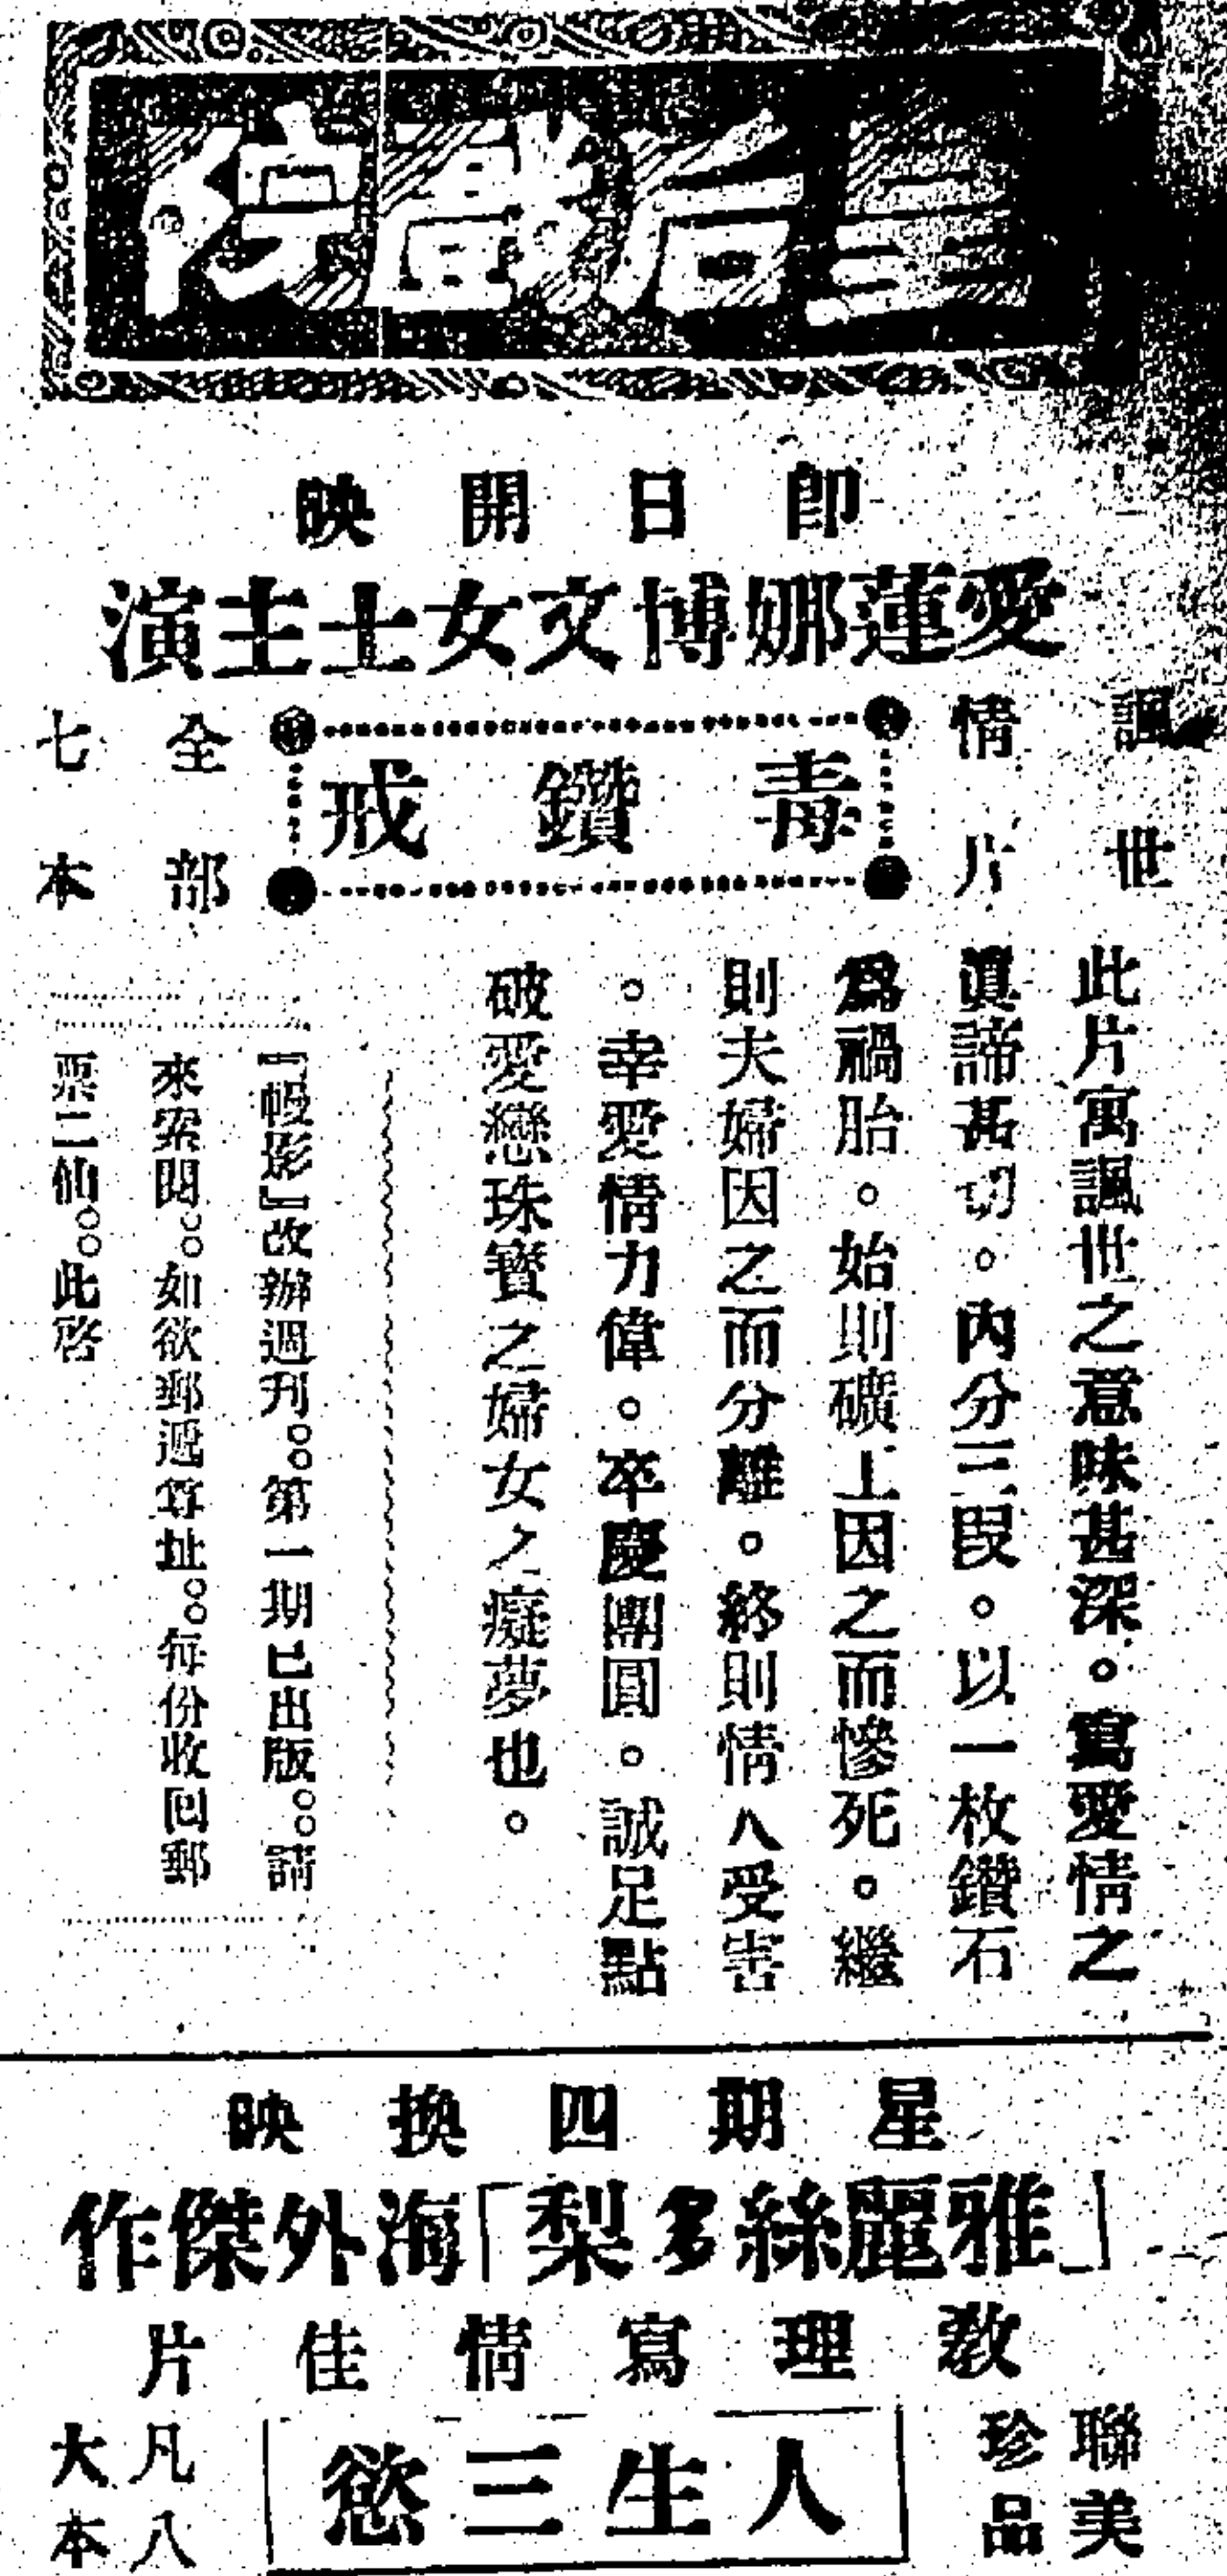 皇后戲院
即日開映
愛蓮娜博文女士主演
諷世
情片
毒鑽戒
全部
七本
此片寓諷世之意味甚深。寫愛情之
眞諦甚切。內分三段。以一枚鑽石
爲禍胎。始則礦工因之而慘死。繼
則夫婦因之而分離。終則情人受害
。幸愛情力偉。卒慶團圓。誠足點
破愛戀珠寶之婦女之癡夢也。
『幔影』改辦週刊。。第一期已出版。。請
來索閱。。如欲郵遞尊址。。每份收回郵
票二仙。。此啓
星期四換映
「雅麗絲多梨」海外傑作
教理寫情佳片
聯美
珍品
人生三慾
凡八
大本